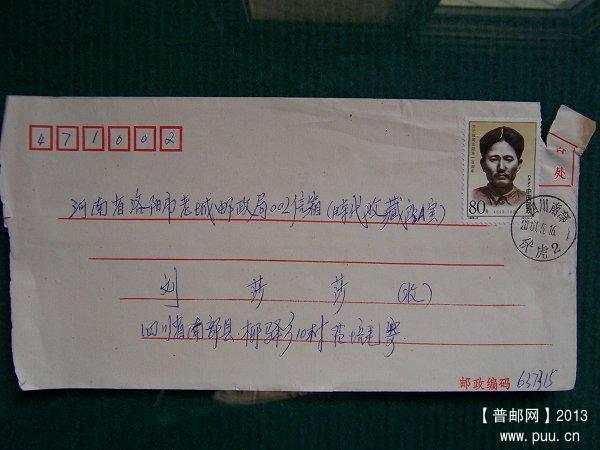 471002
处
80
河南省洛阳市老城邮政局002信箱(时代收藏
四川南部
2001.5.16.
虎2
刘莎莎(收)
四川省南部县柳驿乡10村 范培利寄
邮政编码 637315
【普邮网】2013
www.puu.cn